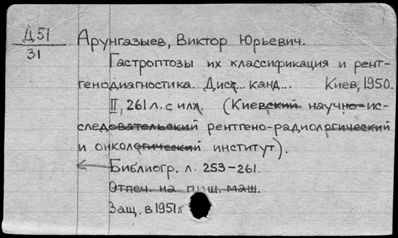 Д51
31
Арунгазыев, Виктор Юрьевич.
Гастроптозы их классификация и рент-
генодиагностика. Дис... канд... Киев, 1950.
II, 261 л. с илл. (Киевский научно-ис-
следовательский рентгено-радиологический
и онкологический институт).
Библиогр. л. 253-261.
Отпеч. на пиш. маш.
Защ. в 1951г